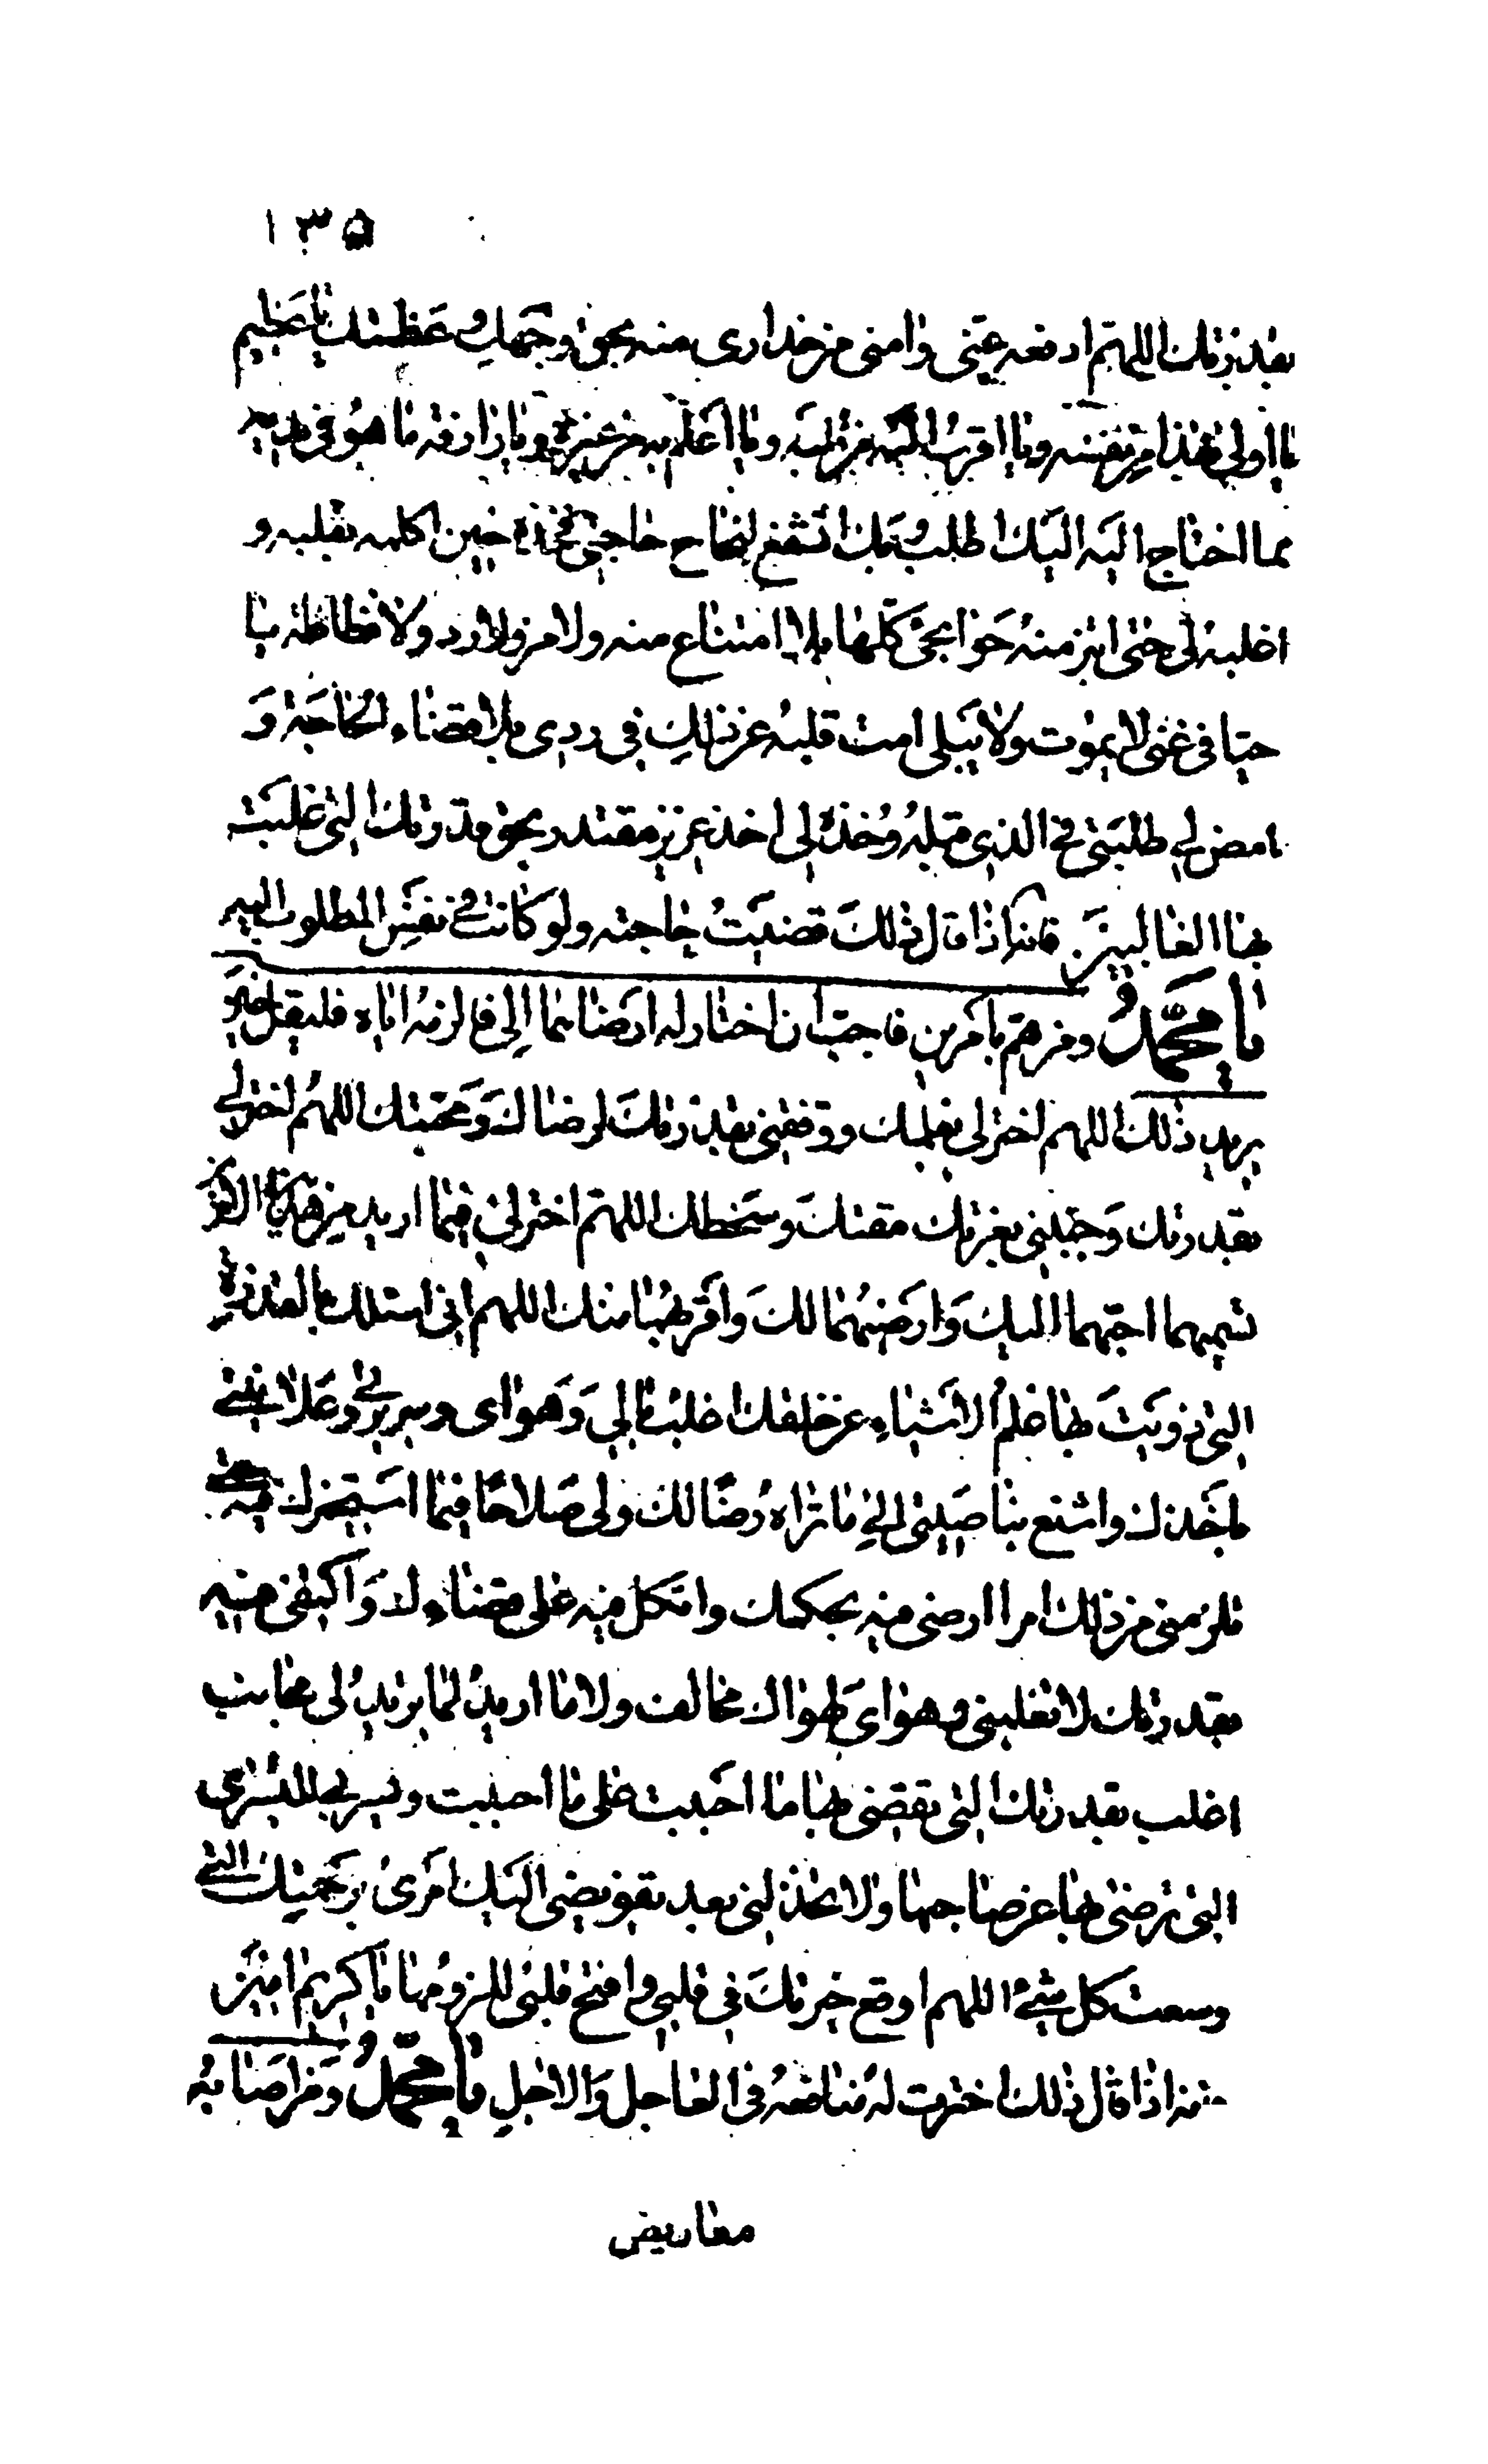 ١٣٥
بقدرتك اللهم ادفعه عنى وامنى من حذارى منه بحق وجهك وعظمتك يا عظيم
يا اولى بهذا من نفسه ويا اقرب اليه من قلبه ويا اعلم به من غيره ويا رازقه ما هو فى يديه
مما احتاج اليه اليك اطلب وبك اتشفع لنجاح حاجتى فخذ لى حين اكلمه بقلبه و
اغلبه لى حتى ابتز منه حوائجى كلها بلا امتناع منه ولا من ولا رد ولا فظاظة يا
حيا فى غنى لا يموت ولا يبلى امت قلبه عن ذلك فى ردى بلا قضاء الحاجة و
امض لى طلبتى فى الذى قبله وخذه لى اخذ عزيز مقتدر بحق قدرتك التى غلبت
بها الغالبين فانه اذا قال ذلك قضيت حاجته ولو كانت فى نفس المطلوب اليه
يا محمد ومن هم بامرين فاحب ان اختار له ارضاهما الى فالزمه اياه فليقل حين
يريد ذلك اللهم اختر لى بعلمك ووفقنى بقدرتك لرضاك ومحبتك اللهم اختر لى
بقدرتك وجنبنى بعزتك مقتك وسخطك اللهم اختر لى فيما اريد من هذين الامرين
تسميهما احبهما اليك وارضهما لك واقربهما منك اللهم انى اسئلك بالقدرة
التى زويت بها علم الاشياء عن خلقك اغلب بالى وهواى وسريرتى وعلانيتى
باخذك واشفع بناصيتى الى ما تراه رضا لك ولى صلاحا فيما استخيرك فيه حتى
تلزمنى من ذلك امرا ارضى فيه بحكمك واتكل فيه على قضائك واكتفى فيه
بقدرتك لا تقلبنى وهواى لهواك مخالف ولا ما اريد لما تريد لى مجانب
اغلب بقدرتك التى تقضى بها ما احببت على ما احببت ويسرنى لليسرى
التى ترضى بها عن صاحبها ولا تخذلنى بعد تفويضى اليك امرى برحمتك التى
وسعت كل شىء اللهم اوقع خيرتك فى قلبى وافتح قلبى للزومها يا كريم امين
فانه اذا قال ذلك اخترت له منافعه فى العاجل والاجل يا محمد ومن اصابه
معاريض